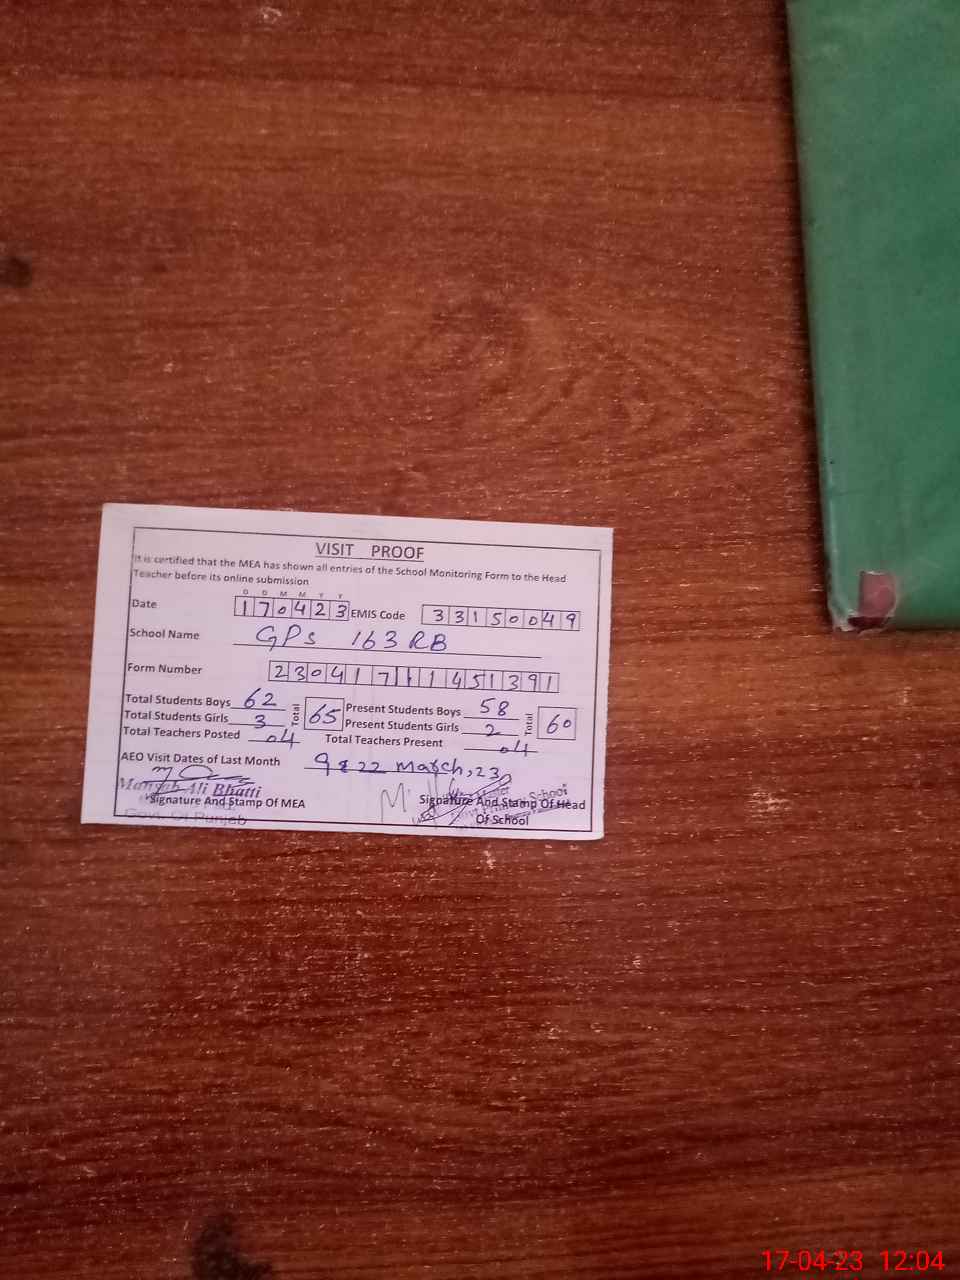 VISIT PROOF
It is certified that the MEA has shown all entries of the School Monitoring Form to the Head
Teacher before its online submission
D D M M Y Y
Date 170423 EMIS Code 33150049
School Name GPS 163 RB
Form Number 230417111451391
Total Students Boys 62 Total 65 Present Students Boys 58 Total 60
Total Students Girls 3 Present Students Girls 2
Total Teachers Posted 04 Total Teachers Present 04
AEO Visit Dates of Last Month 9 & 22 march, 23
Ali Bhatti
Signature And Stamp Of MEA Signature And Stamp Of Head
Govt. Of Punjab Of School
17-04-23 12:04